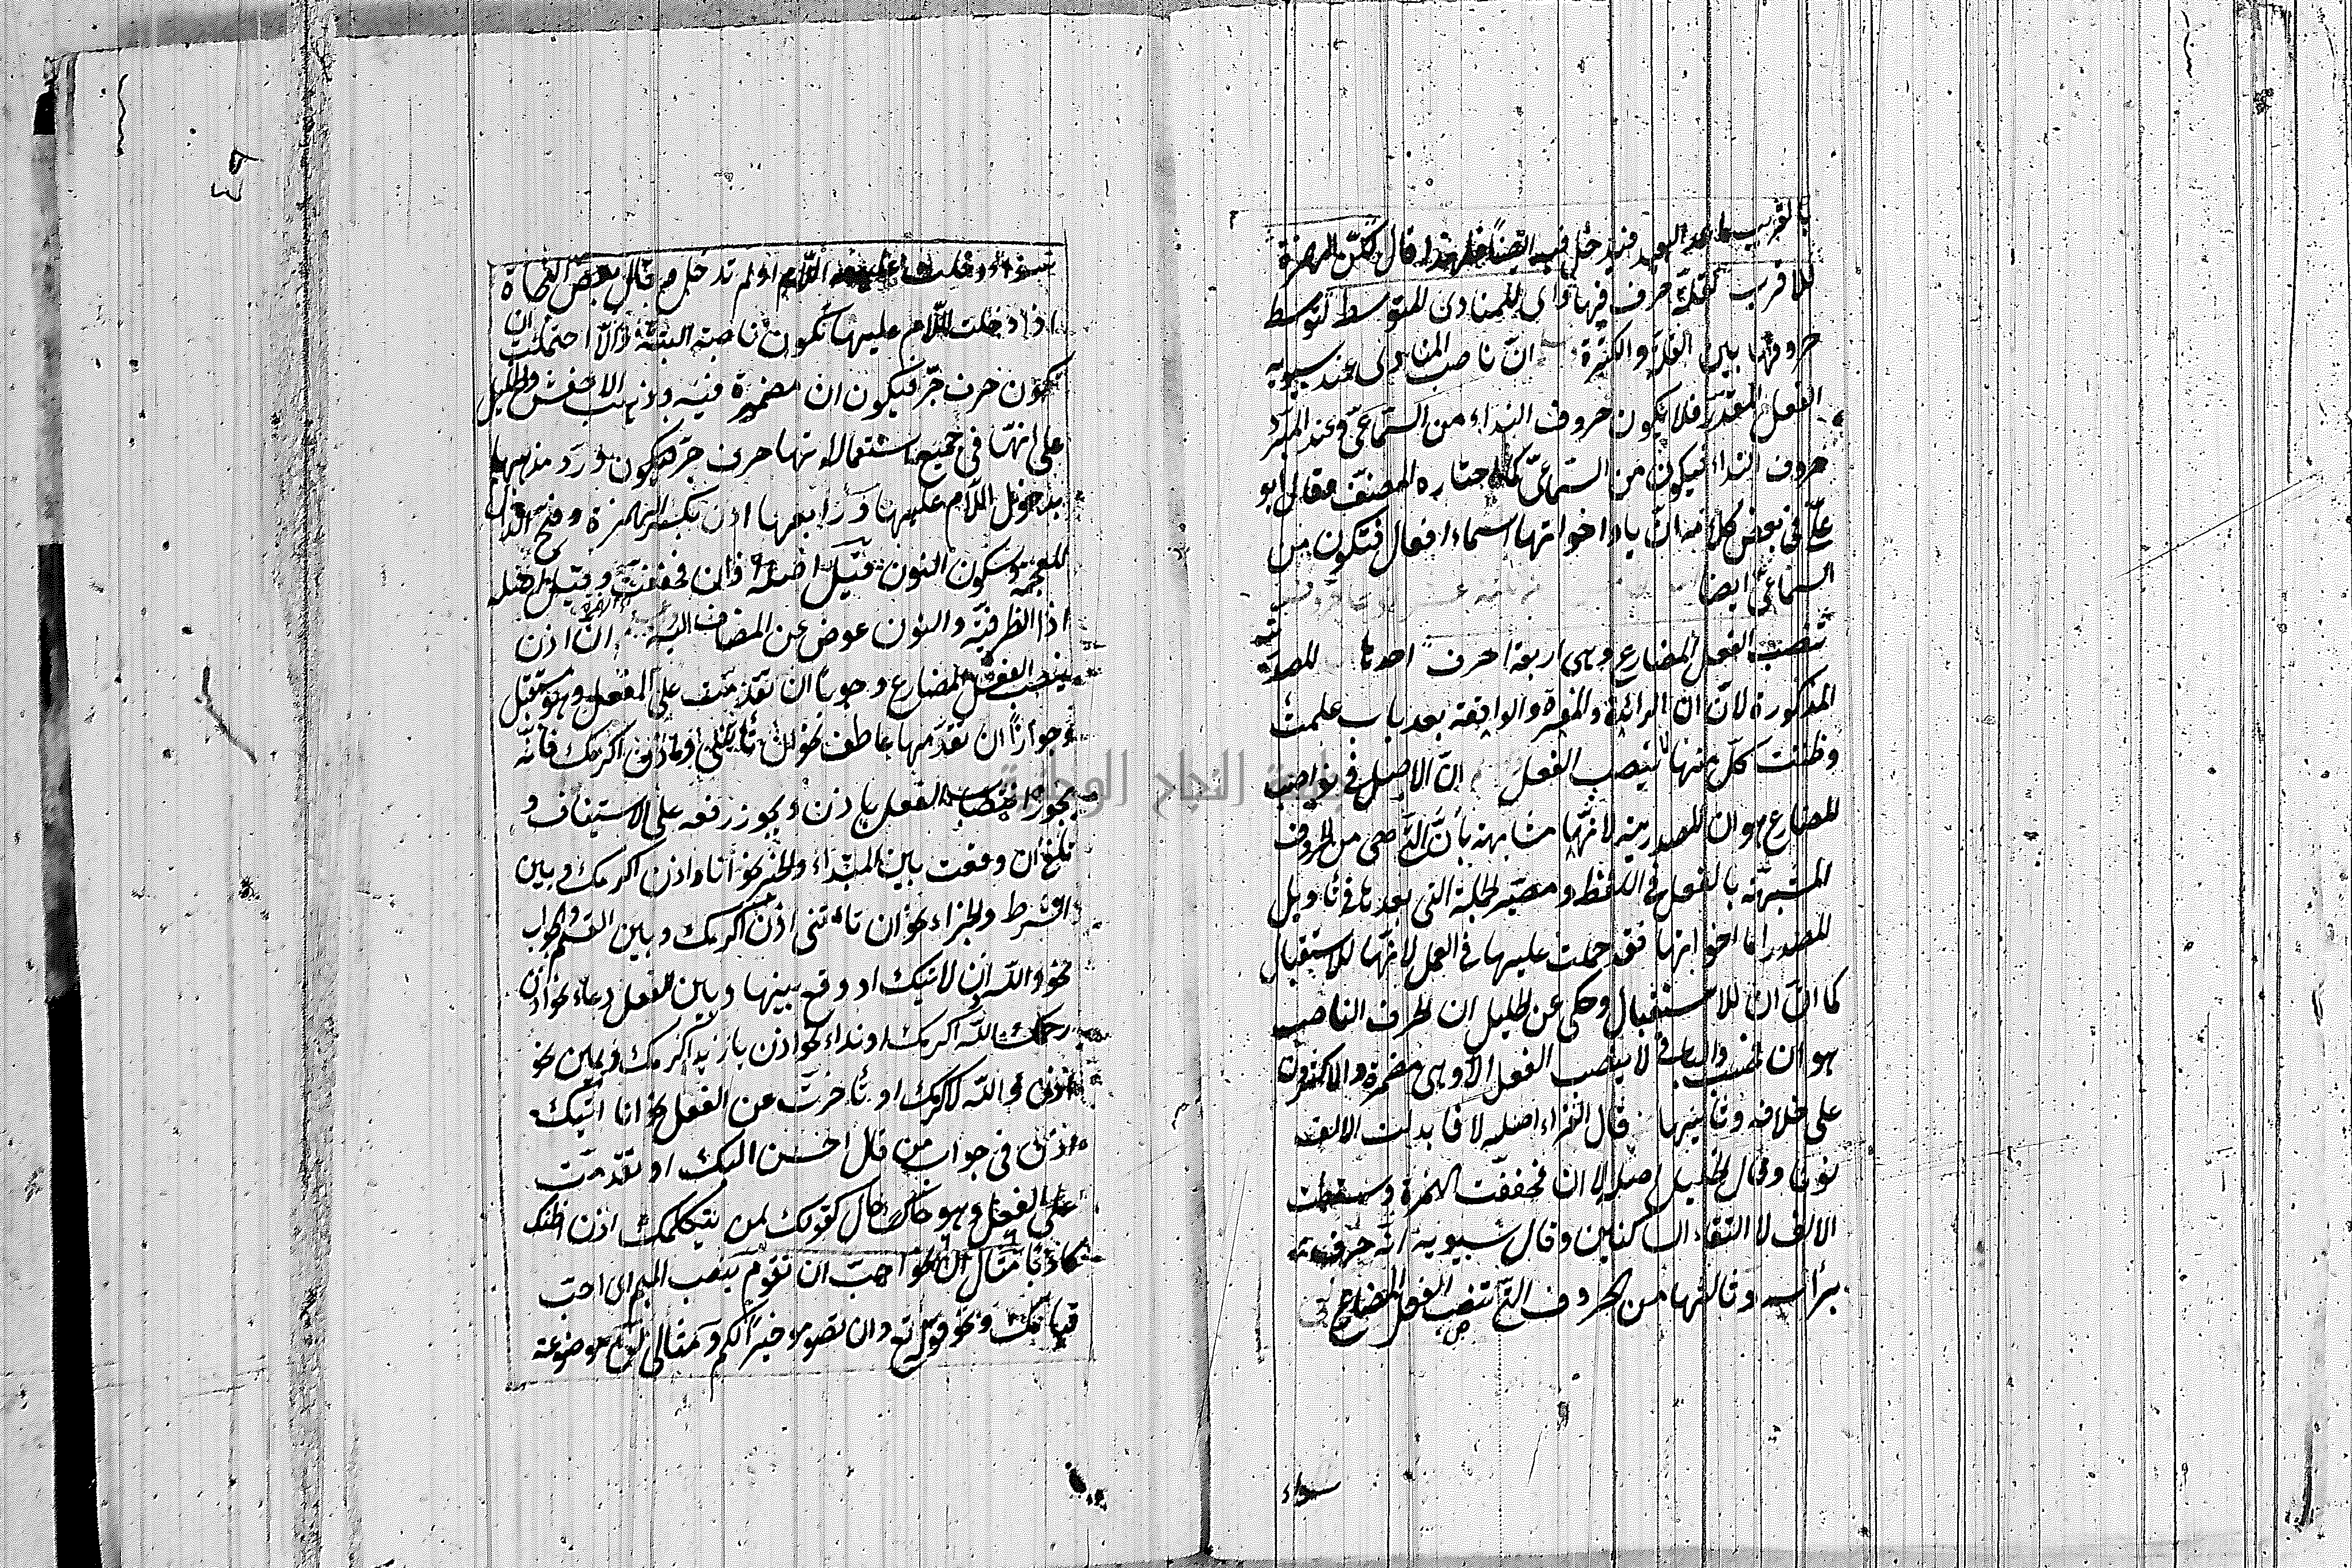 بالقريب ما عدا البعيد فيدخل فيه ايضا فلهذا قال لكن الهمزة
للاقرب لقلة حرف فيها واى للمنادى للمتوسط لتوسط
حروفها بين القلة والكثرة ان ناصب المنادى عند سيبويه
الفعل المقدر فلا يكون حروف النداء من السماعى وعند المبرد
حروف النداء فيكون من السماعى كما اختاره المصنف فقال ابو
على فى بعض كلامه ان يا واخواتها اسماء افعال فتكون من
السماعى ايضا
تنصب الفعل المضارع وهى اربعة احرف احدها للمصدرية
المذكورة لان ان الزائدة والمفسرة والواقعة بعد باب علمت
وظننت كل منها لا ينصب الفعل ان الاصل فى نواصب
المضارع هو ان المصدرية لانها مشابهة بأن التى هى من الحروف
المشبهة بالفعل فى اللفظ ومصيرة لجملة التى بعدها فى تاويل
المصدر اما اخواتها فقد حملت عليها فى العمل لانها للاستقبال
كما ان ان للاستقبال وحكى عن الخليل ان الحرف الناصب
هو ان فحسب والباقى لا ينصب الفعل الا وهى مضمرة والاكثرون
على خلافه وثانيتها قال الفراء اصله لا فابدلت الالف
نونا وقال الخليل اصله لا ان فخففت الهمزة وسقطت
الالف لالتقاء الساكنين وقال سيبويه انه حرف
برأسه وثالثها من الحروف التى تنصب الفعل المضارع كى
سواء
سواء دخلت عليها اللام او لم تدخل وقال بعض النحاة
اذا دخلت اللام عليها تكون ناصبة البتة والا احتملت ان
تكون حرف جر فيكون ان مضمرة فيه وذهب الاخفش والخليل
على انها فى جميع استعمالاتها حرف جر فيكون ورد مذهبها
بدخول اللام عليها ورابعها اذن بكسر الهمزة وفتح الذال
المعجمة وسكون النون قيل اصله اذ ان فخففت وقيل اصله
اذا الظرفية والنون عوض عن المضاف اليه ان اذن
ينصب الفعل المضارع وجوبا ان تقدمت على الفعل وهو مستقبل
وجوازا ان تقدمها عاطف نحو فأذن اكرمك فانه
يجوز انتصاب الفعل باذن ويجوز رفعه على الاستيناف و
تلغ ان وقعت بين المبتداء والخبر نحو انا واذن اكرمك وبين
الشرط والجزاء نحو ان تاتنى اذن اكرمك وبين القسم والجواب
نحو والله اذن لاتيك او وقع بينها وبين الفعل دعاء نحو اذن
رحمك الله اكرمك او نداء نحو اذن يا زيد اكرمك ويمين نحو
اذن والله لاكرمك او تأخرت عن الفعل نحو انا اتيك
اذن فى جواب من قال احسن اليك او تقدمت
على الفعل وهو حال كقولك لمن يتكلمك اذن اظنك
كاذبا مثال ان نحو احب ان تقوم بنصب الميم اى احب
قيامك ونحو قوله تع وان تصوموا خير لكم ومثال موضوعة